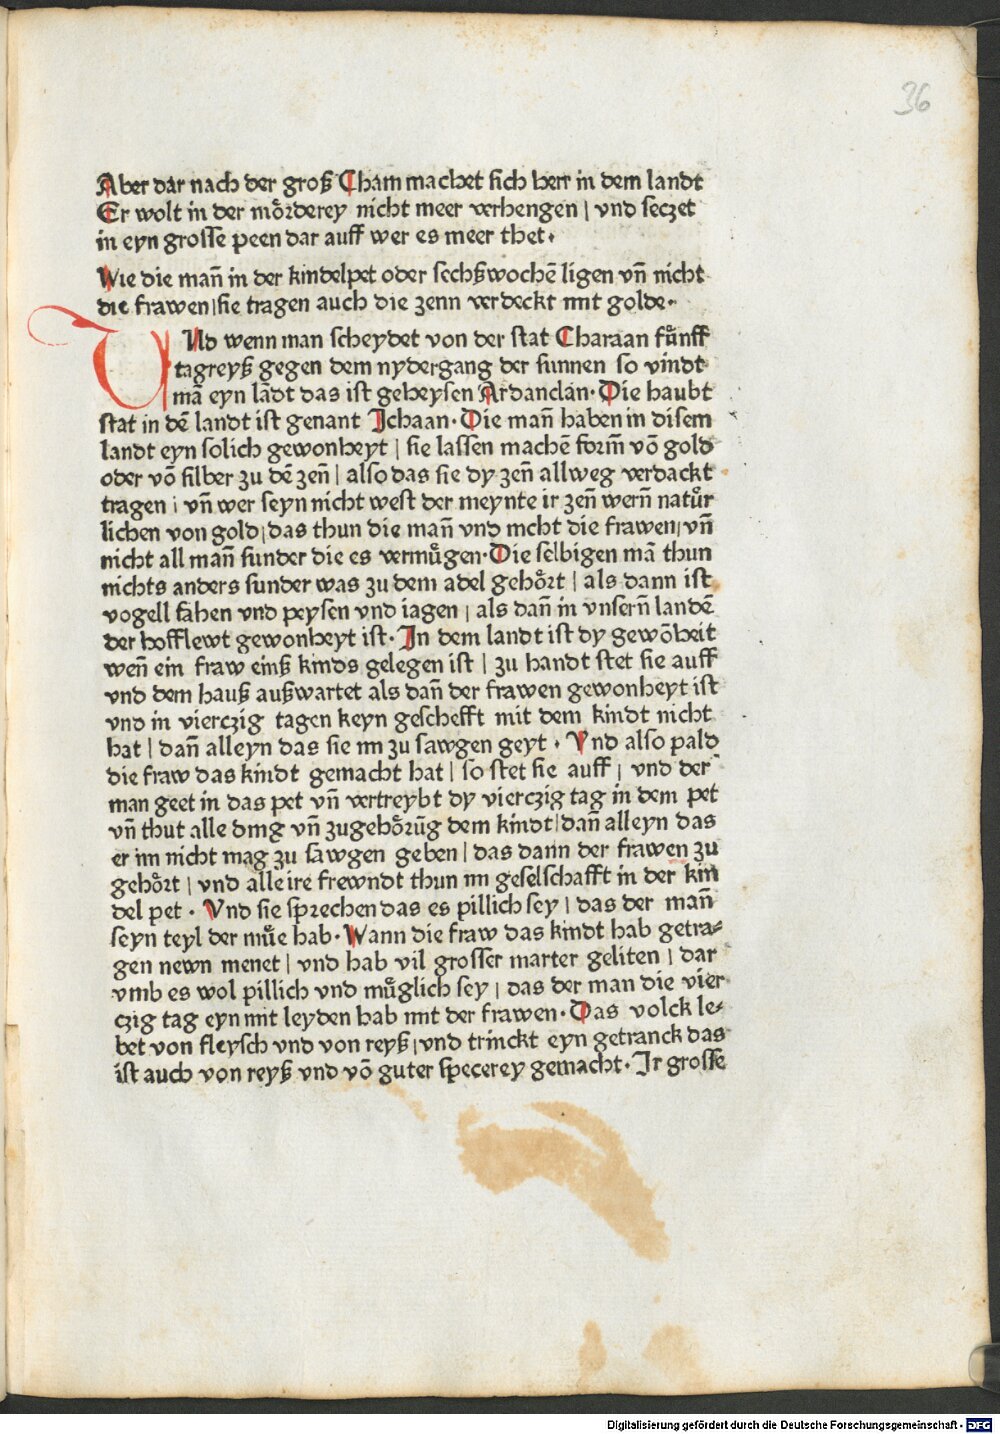 36
Aber dar nach der groß Cham machet sich herr in dem landt
Er wolt in der moͤrderey nicht meer verhengen / vnd seczet
in eyn grosse peen dar auff wer es meer thet.
Wie die man̄ in der kindelpet oder sechßwochē ligen vn̄ nicht
die frawen/sie tragen auch die zenn verdeckt mit golde.
VNd wenn man scheydet von der stat Charaan fuͤnff
tagreyß gegen dem nydergang der sunnen so vindt
mā eyn lādt das ist geheysen Ardandan. Die haubt
stat in dē landt ist genant Ichaan. Die man̄ haben in disem
landt eyn solich gewonheyt / sie lassen machē form̄ vō gold
oder vō silber zu dē zen̄ / also das sie dy zen̄ allweg verdackt
tragen / vn̄ wer seyn nicht west der meynte ir zen̄ wern̄ natuͤr
lichen von gold/das thun die man̄ vnd nicht die frawen/vn̄
nicht all man̄ sunder die es vermuͤgen. Die selbigen mā thun
nichts anders sunder was zu dem adel gehoͤrt / als dann ist
vogell fahen vnd peysen vnd iagen / als dan̄ in vnsern̄ landē
der hofflewt gewonheyt ist. In dem landt ist dy gewōheit
wen̄ ein fraw einß kinds gelegen ist / zu handt stet sie auff
vnd dem hauß außwartet als dan̄ der frawen gewonheyt ist
vnd in vierczig tagen keyn geschefft mit dem kindt nicht
hat / dan̄ alleyn das sie im zu sawgen geyt . Vnd also pald
die fraw das kindt gemacht hat / so stet sie auff / vnd der
man geet in das pet vn̄ vertreybt dy vierczig tag in dem pet
vn̄ thut alle ding vn̄ zugehoͤrūg dem kindt/dan̄ alleyn das
er im nicht mag zu sawgen geben / das dann der frawen zu
gehoͤrt / vnd alle ire frewndt thun im geselschafft in der kin
del pet . Vnd sie sprechen das es pillich sey / das der man̄
seyn teyl der muͤe hab. Wann die fraw das kindt hab getra⸗
gen newn menet / vnd hab vil grosser marter geliten / dar
vmb es wol pillich vnd muͤglich sey / das der man die vier
czig tag eyn mit leyden hab mit der frawen. Das volck le⸗
bet von fleysch vnd von reyß/vnd trinckt eyn getranck das
ist auch von reyß vnd vō guter specerey gemacht. Ir grosse
Digitalisierung gefördert durch die Deutsche Forschungsgemeinschaft - DFG